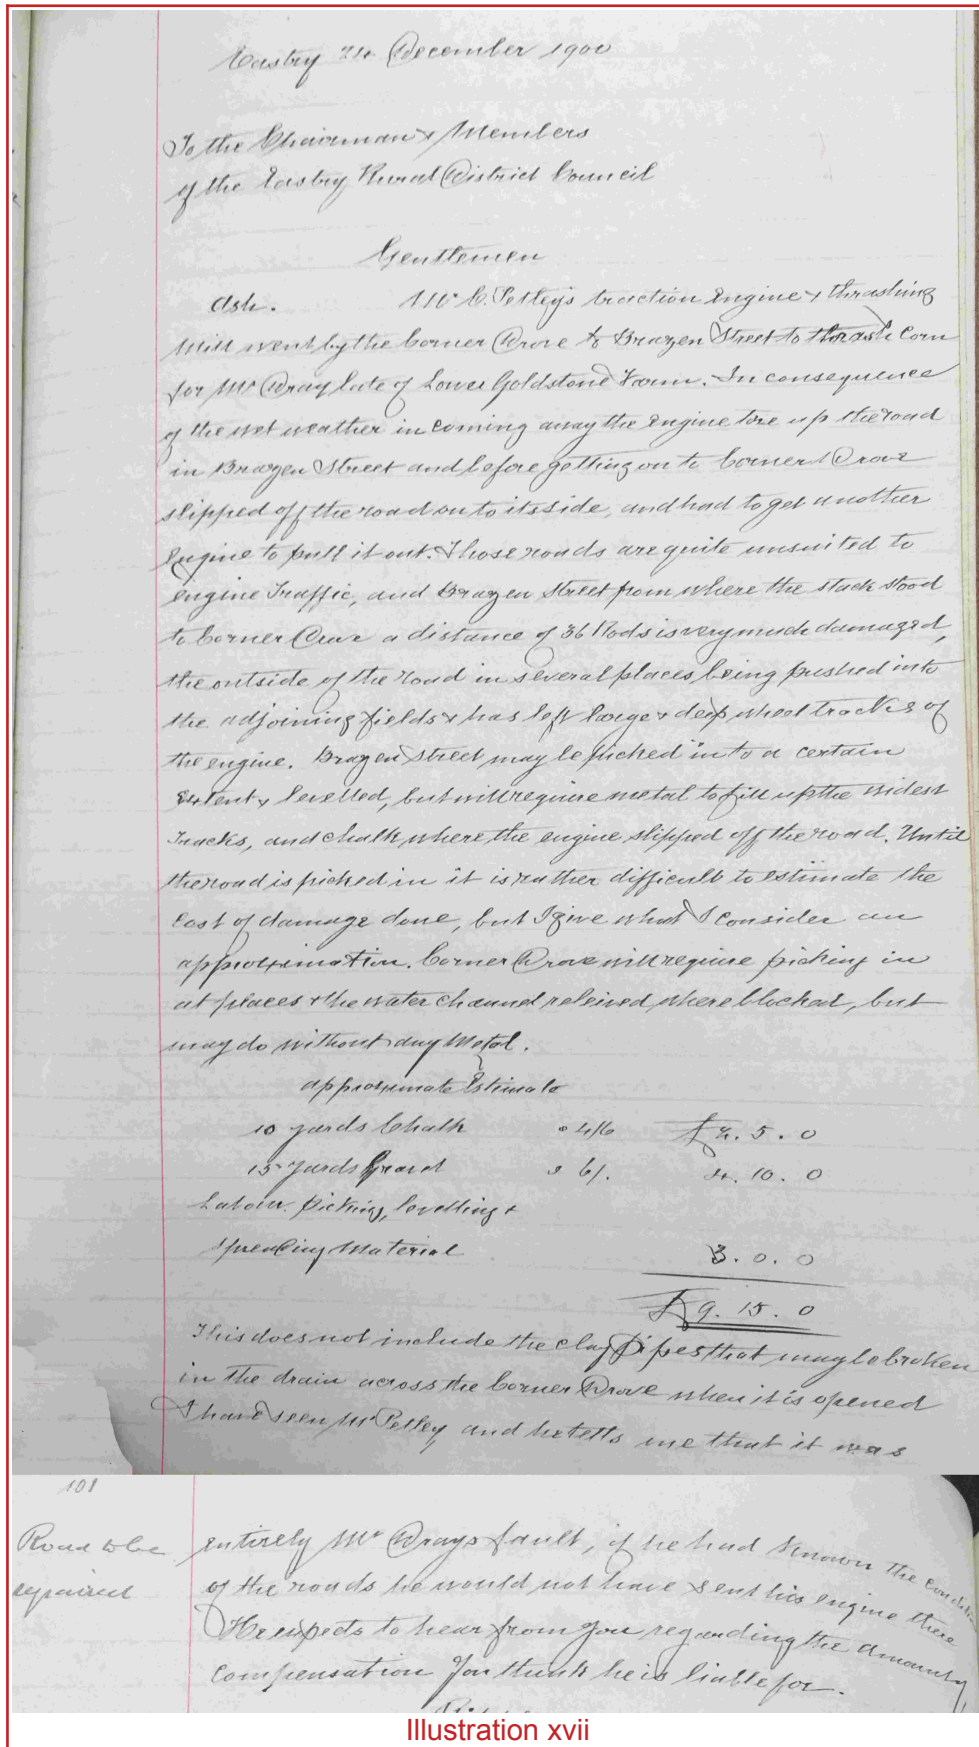 Eastry 24 December 1900
To the Chairman & Members
of the Eastry Rural District Council
Gentlemen
Ash. Mr C. Petley's traction Engine & thrashing
Mill went by the Corner Drove to Brazen Street to thrash Corn
for Mr Dray late of Lower Goldstone Farm. In consequence
of the wet weather in coming away the Engine tore up the road
in Brazen Street and before getting on to Corner Drove
slipped off the road on to its side, and had to get another
Engine to pull it out. Those roads are quite unsuited to
Engine Traffic, and Brazen Street from where the stack stood
to Corner Drove a distance of 36 Rods is very much damaged,
the outside of the road in several places being pushed into
the adjoining fields & has left large & deep wheel tracks of
the engine. Brazen Street may be picked in to a certain
Extent & levelled, but will require metal to fill up the widest
Tracks, and chalk where the engine slipped off the road. Until
the road is picked in it is rather difficult to estimate the
Cost of damage done, but I give what I consider an
approximation. Corner Drove will require picking in
at places & the water channel relieved where blocked, but
may do without any Metal.
approximate Estimate
10 yards Chalk @ 4/6 £2. 5. 0
15 yards Gravel @ 6/. 4. 10. 0
Labour. picking, levelling &
spreading Material 3. 0. 0
£9. 15. 0
This does not include the clay pipes that may be broken
in the drain across the Corner Drove when it is opened
I have seen Mr Petley, and he tells me that it was
101
Road to be repaired
entirely Mr Drays fault, if he had known the
of the roads he would not have sent his engine there
He expects to hear from you regarding the amount
compensation you think he is liable for.
Illustration xvii